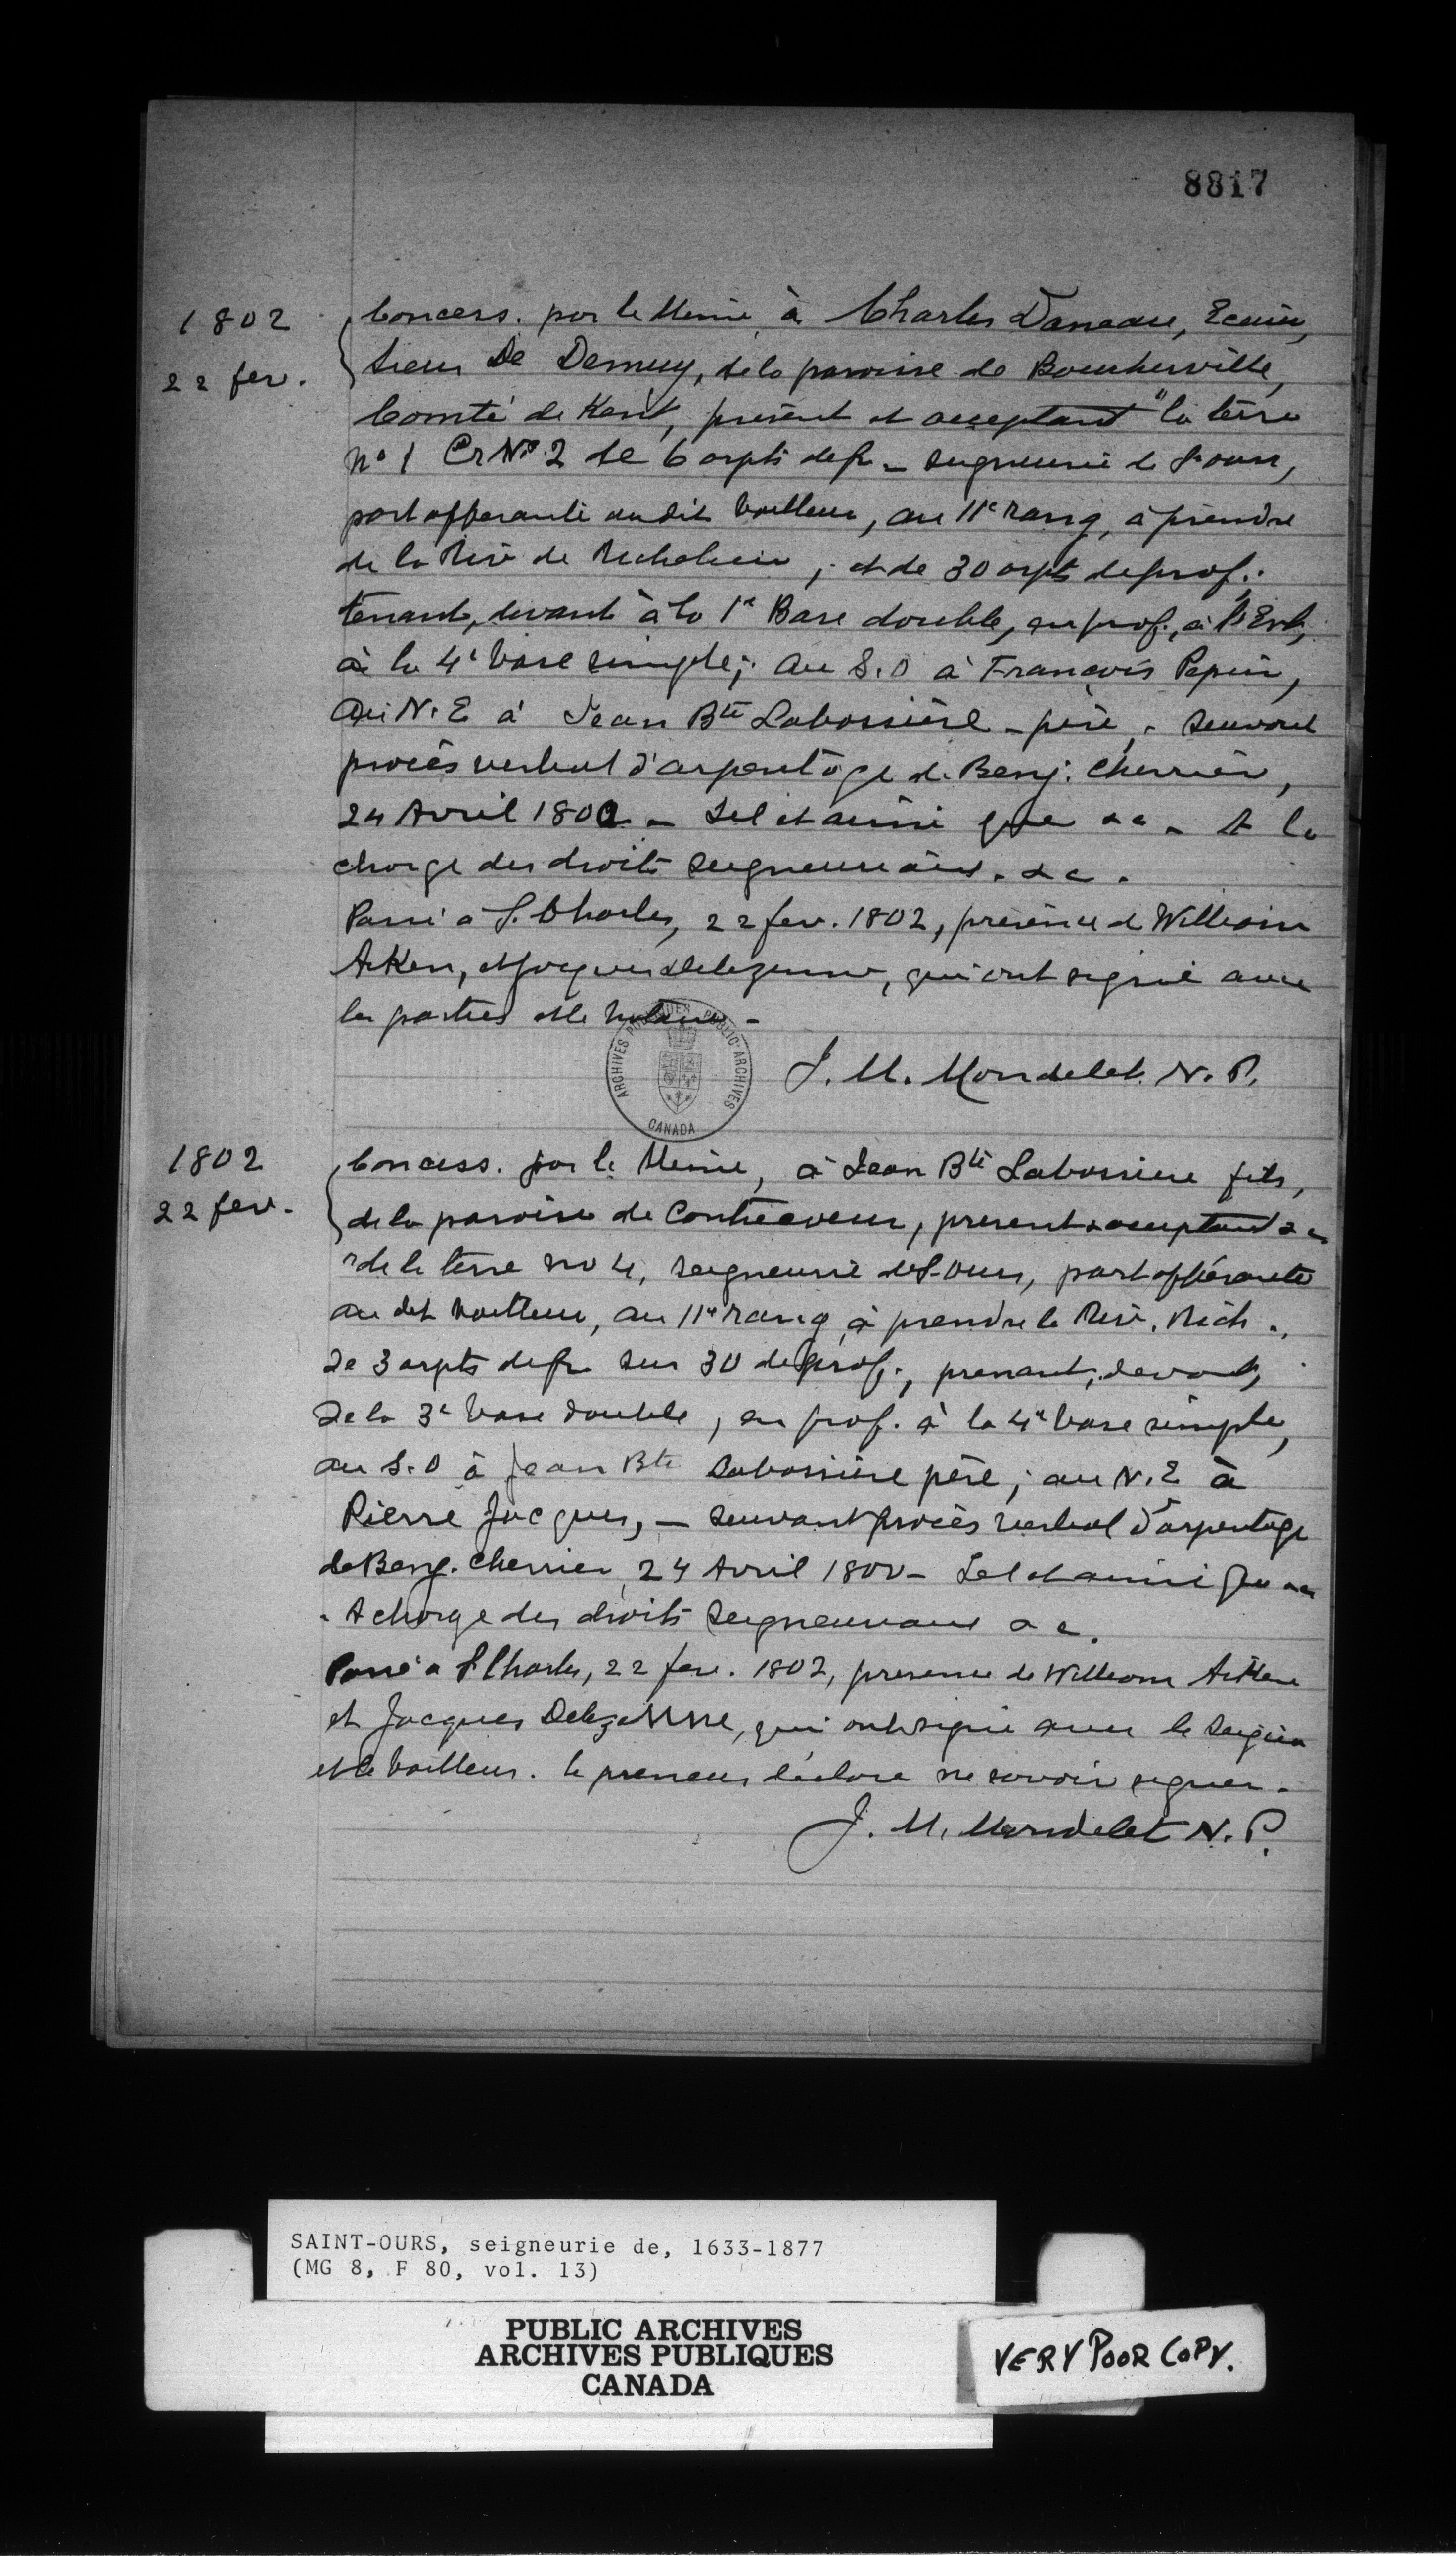 8817
1802
22 fev.
Concess. par le Meme, à Charles Daneau, Ecuier,
Sieur De Demuy, de la paroisse de Boucherville,
Comté de Kent, présent et acceptant "la terre
No 1 Et No 2 de 6 arpts de fr. - seigneurie de St ours,
part afferante audit bailleur, au 11e rang, à prendre
de la Riv. de Richelieu ; et de 30 arpts de prof.
tenant, devant à la 1e Base double, en prof., à l'Est,
à la 4e base simple ; au S.O à Francois Pepin,
Au N.E à Jean Bte Labossière - père, - suivant
procès verbal d'arpentage de Benj. Cherrier,
24 Avril 1800 - Tel et ainsi que &c - A la
charge des droits seigneuriaux. &c.
Passé à St. Charles, 22 fev. 1802, présence de William
Aken, et Jacques Delezenne, qui ont signé avec
les parties et le notaire -
J. M. Mondelet. N. P.
ARCHIVES PUBLIQUES PUBLIC ARCHIVES
CANADA
1802
22 fev.
Concess. par le Meme, à Jean Bte Labossiere fils,
de la paroisse de Contrecoeur, present & acceptant &c
"de la terre no 4, seigneurie de St-Ours, part afférante
au dit bailleur, au 11e rang, à prendre la Riv. Rich.,
de 3 arpts de fr. sur 30 de prof., prenant, devant,
de la 3e base double, en prof. à la 4e base simple,
au S.O à Jean Bte Labossière père ; au N.E à
Pierre Jacques, - suivant procès verbal d'arpentage
de Benj. Cherrier, 24 Avril 1800 - Tel et ainsi que &c
- A charge des droits seigneuriaux &c.
Passé à St Charles, 22 fev. 1802, presence de William Aiken
et Jacques Delezenne, qui ont signé avec le
et le bailleur. le preneur déclare ne savoir signer.
J. M. Mondelet N. P.
SAINT-OURS, seigneurie de, 1633-1877
(MG 8, F 80, vol. 13)
PUBLIC ARCHIVES
ARCHIVES PUBLIQUES
CANADA
VERY POOR COPY.